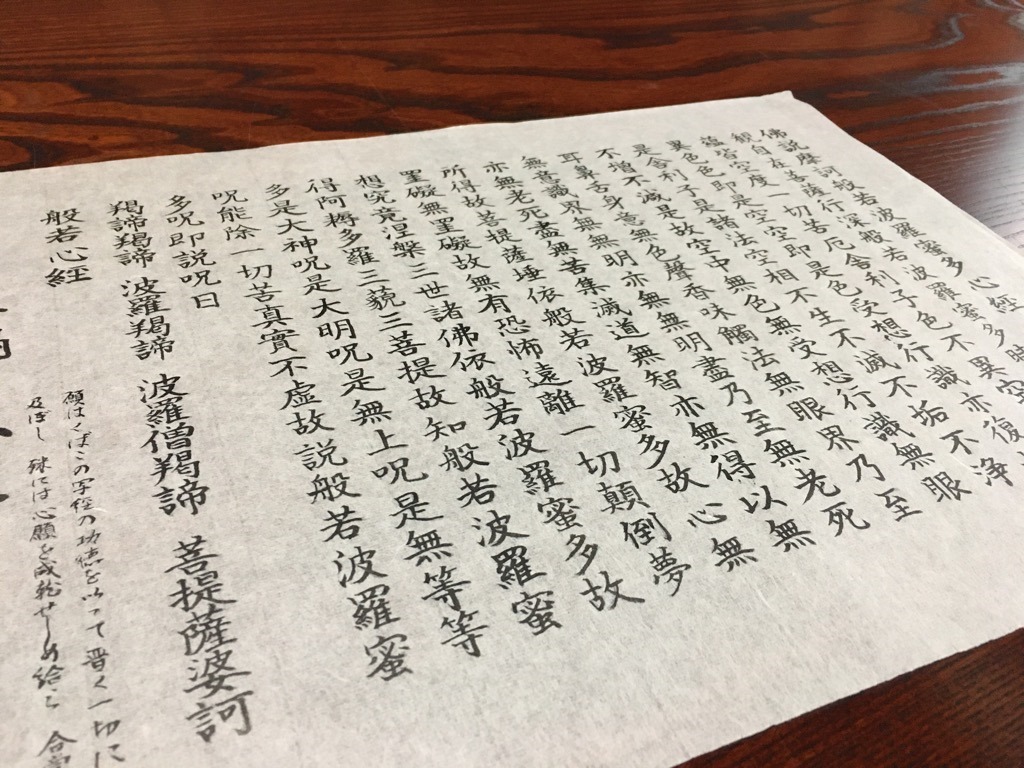 佛説摩訶般若波羅蜜多心經
觀自在菩薩行深般若波羅蜜多時
蘊皆空度一切苦厄舍利子色不異空
異色色即是空空即是色受想行識亦復
是舍利子是諸法空相不生不滅不垢不淨
不增不減是故空中無色無受想行識無眼
耳鼻舌身意無色聲香味觸法無眼界乃至
無意識界無無明亦無無明盡乃至無老死
亦無老死盡無苦集滅道無智亦無得以無
所得故菩提薩埵依般若波羅蜜多故心無
罣礙無罣礙故無有恐怖遠離一切顛倒夢
想究竟涅槃三世諸佛依般若波羅蜜多故
得阿耨多羅三藐三菩提故知般若波羅蜜
多是大神呪是大明呪是無上呪是無等等
呪能除一切苦真實不虚故説般若波羅蜜
多呪即説呪曰
羯諦羯諦 波羅羯諦 波羅僧羯諦 菩提薩婆訶
般若心經
願はくばこの写経の功徳を以って普く一切に
及ぼし 殊には心願を成就せしめ給え 合掌